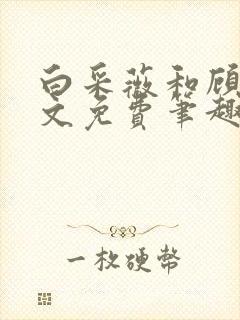 白采薇和顾
文免费笔趣
一枚硬币